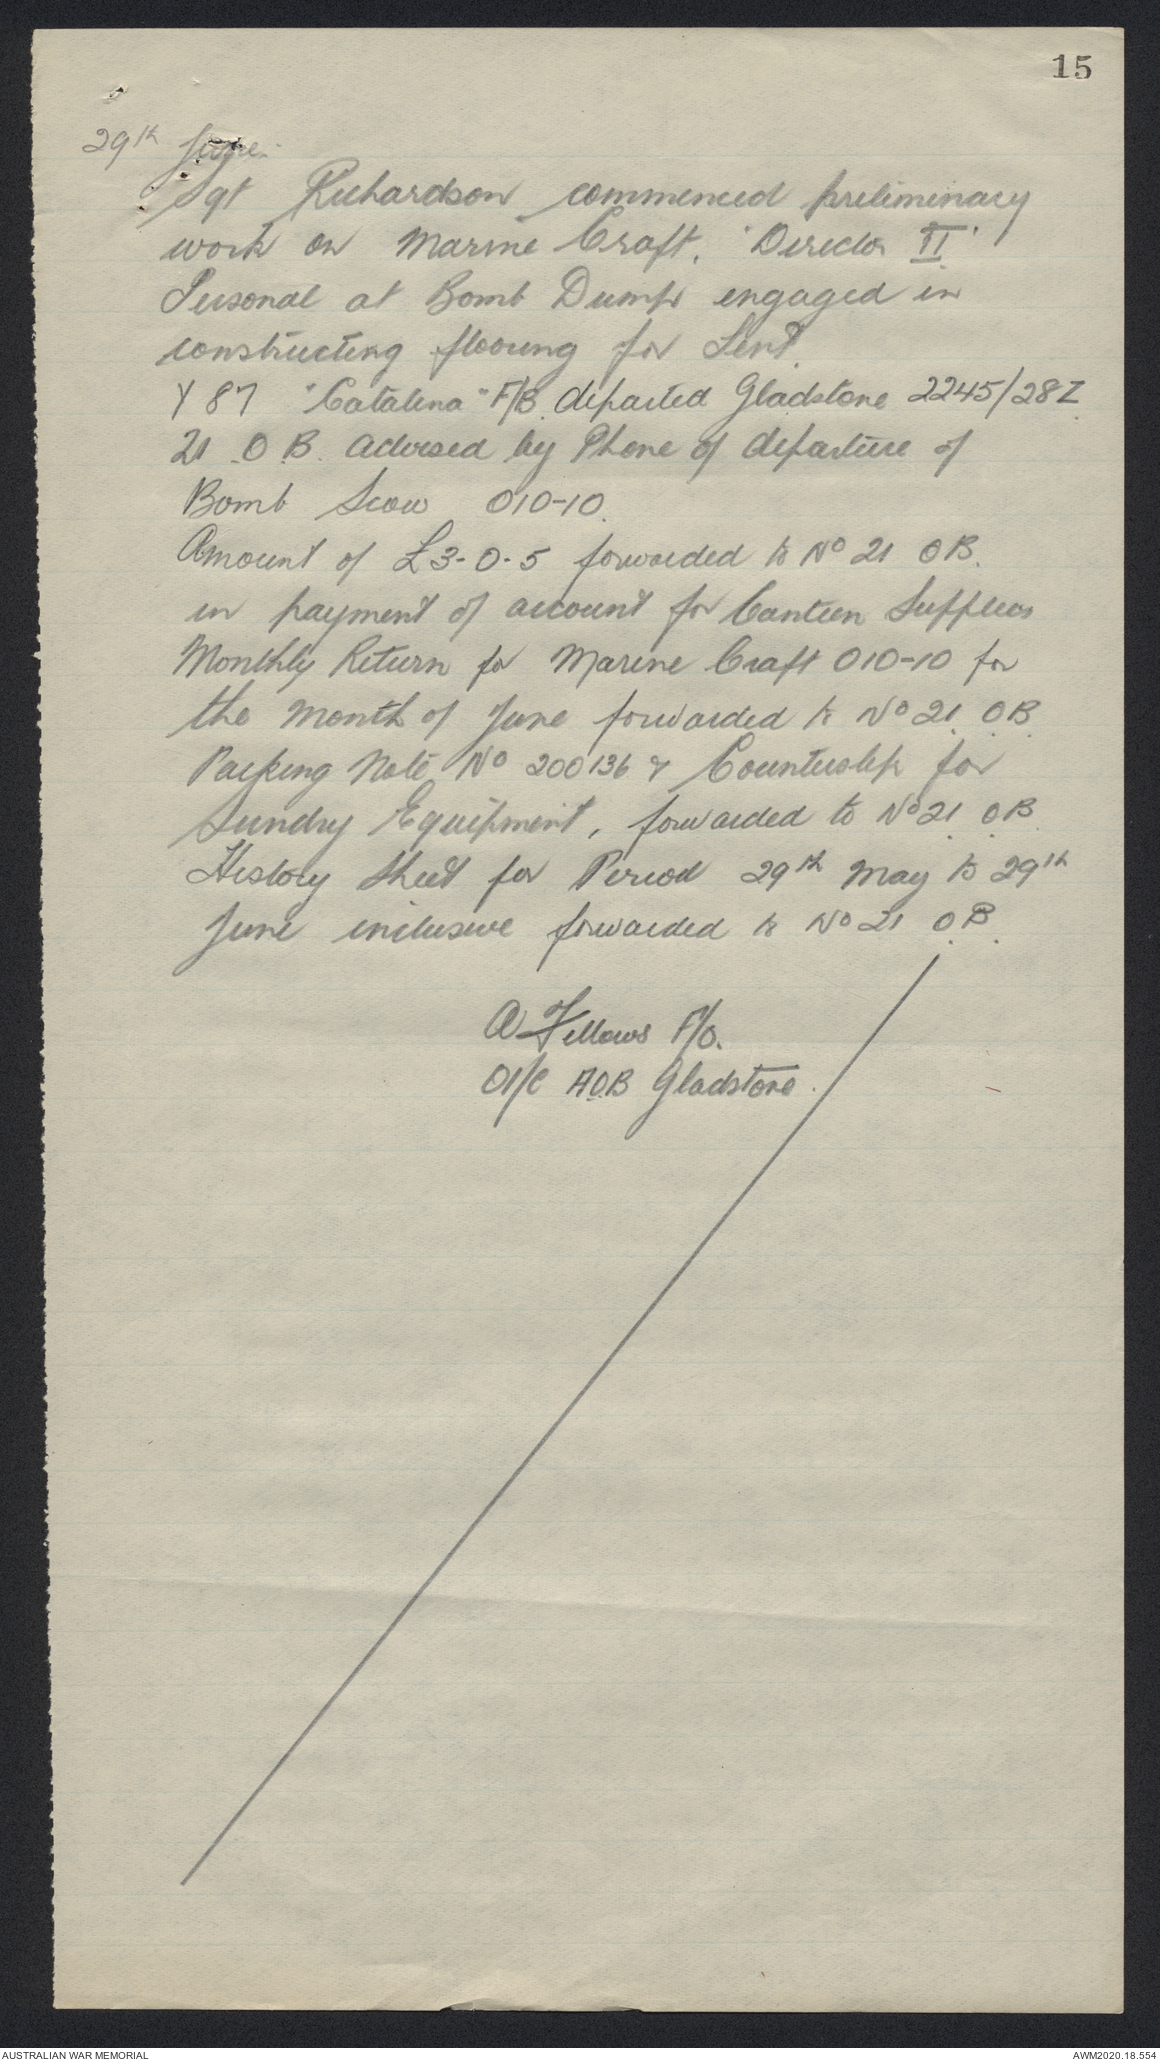 15
29th June.
Sgt Richardson commenced preliminary
work on Marine Craft, "Director II"
Personal at Bomb Dump engaged in
constructing flooring for Tent.
Y 87 "Catalina" F/B. departed Gladstone 2245/28Z
21 O.B. advised by Phone of departure of
Bomb Scow 010-10.
Amount of £3-0-5 forwarded to No 21 OB.
in payment of account for Canteen Supplies
Monthly Return for Marine Craft 010-10 for
the month of June forwarded to No 21. O.B.
Packing Note No 200136 & Counterslip for
Sundry Equipment, forwarded to No 21 O.B.
History Sheet for Period 29th May to 29th
June inclusive forwarded to No 21 O.B.
A Fellows F/O.
O/C A.O.B Gladstone.
AUSTRALIAN WAR MEMORIAL
AWM2020.18.554